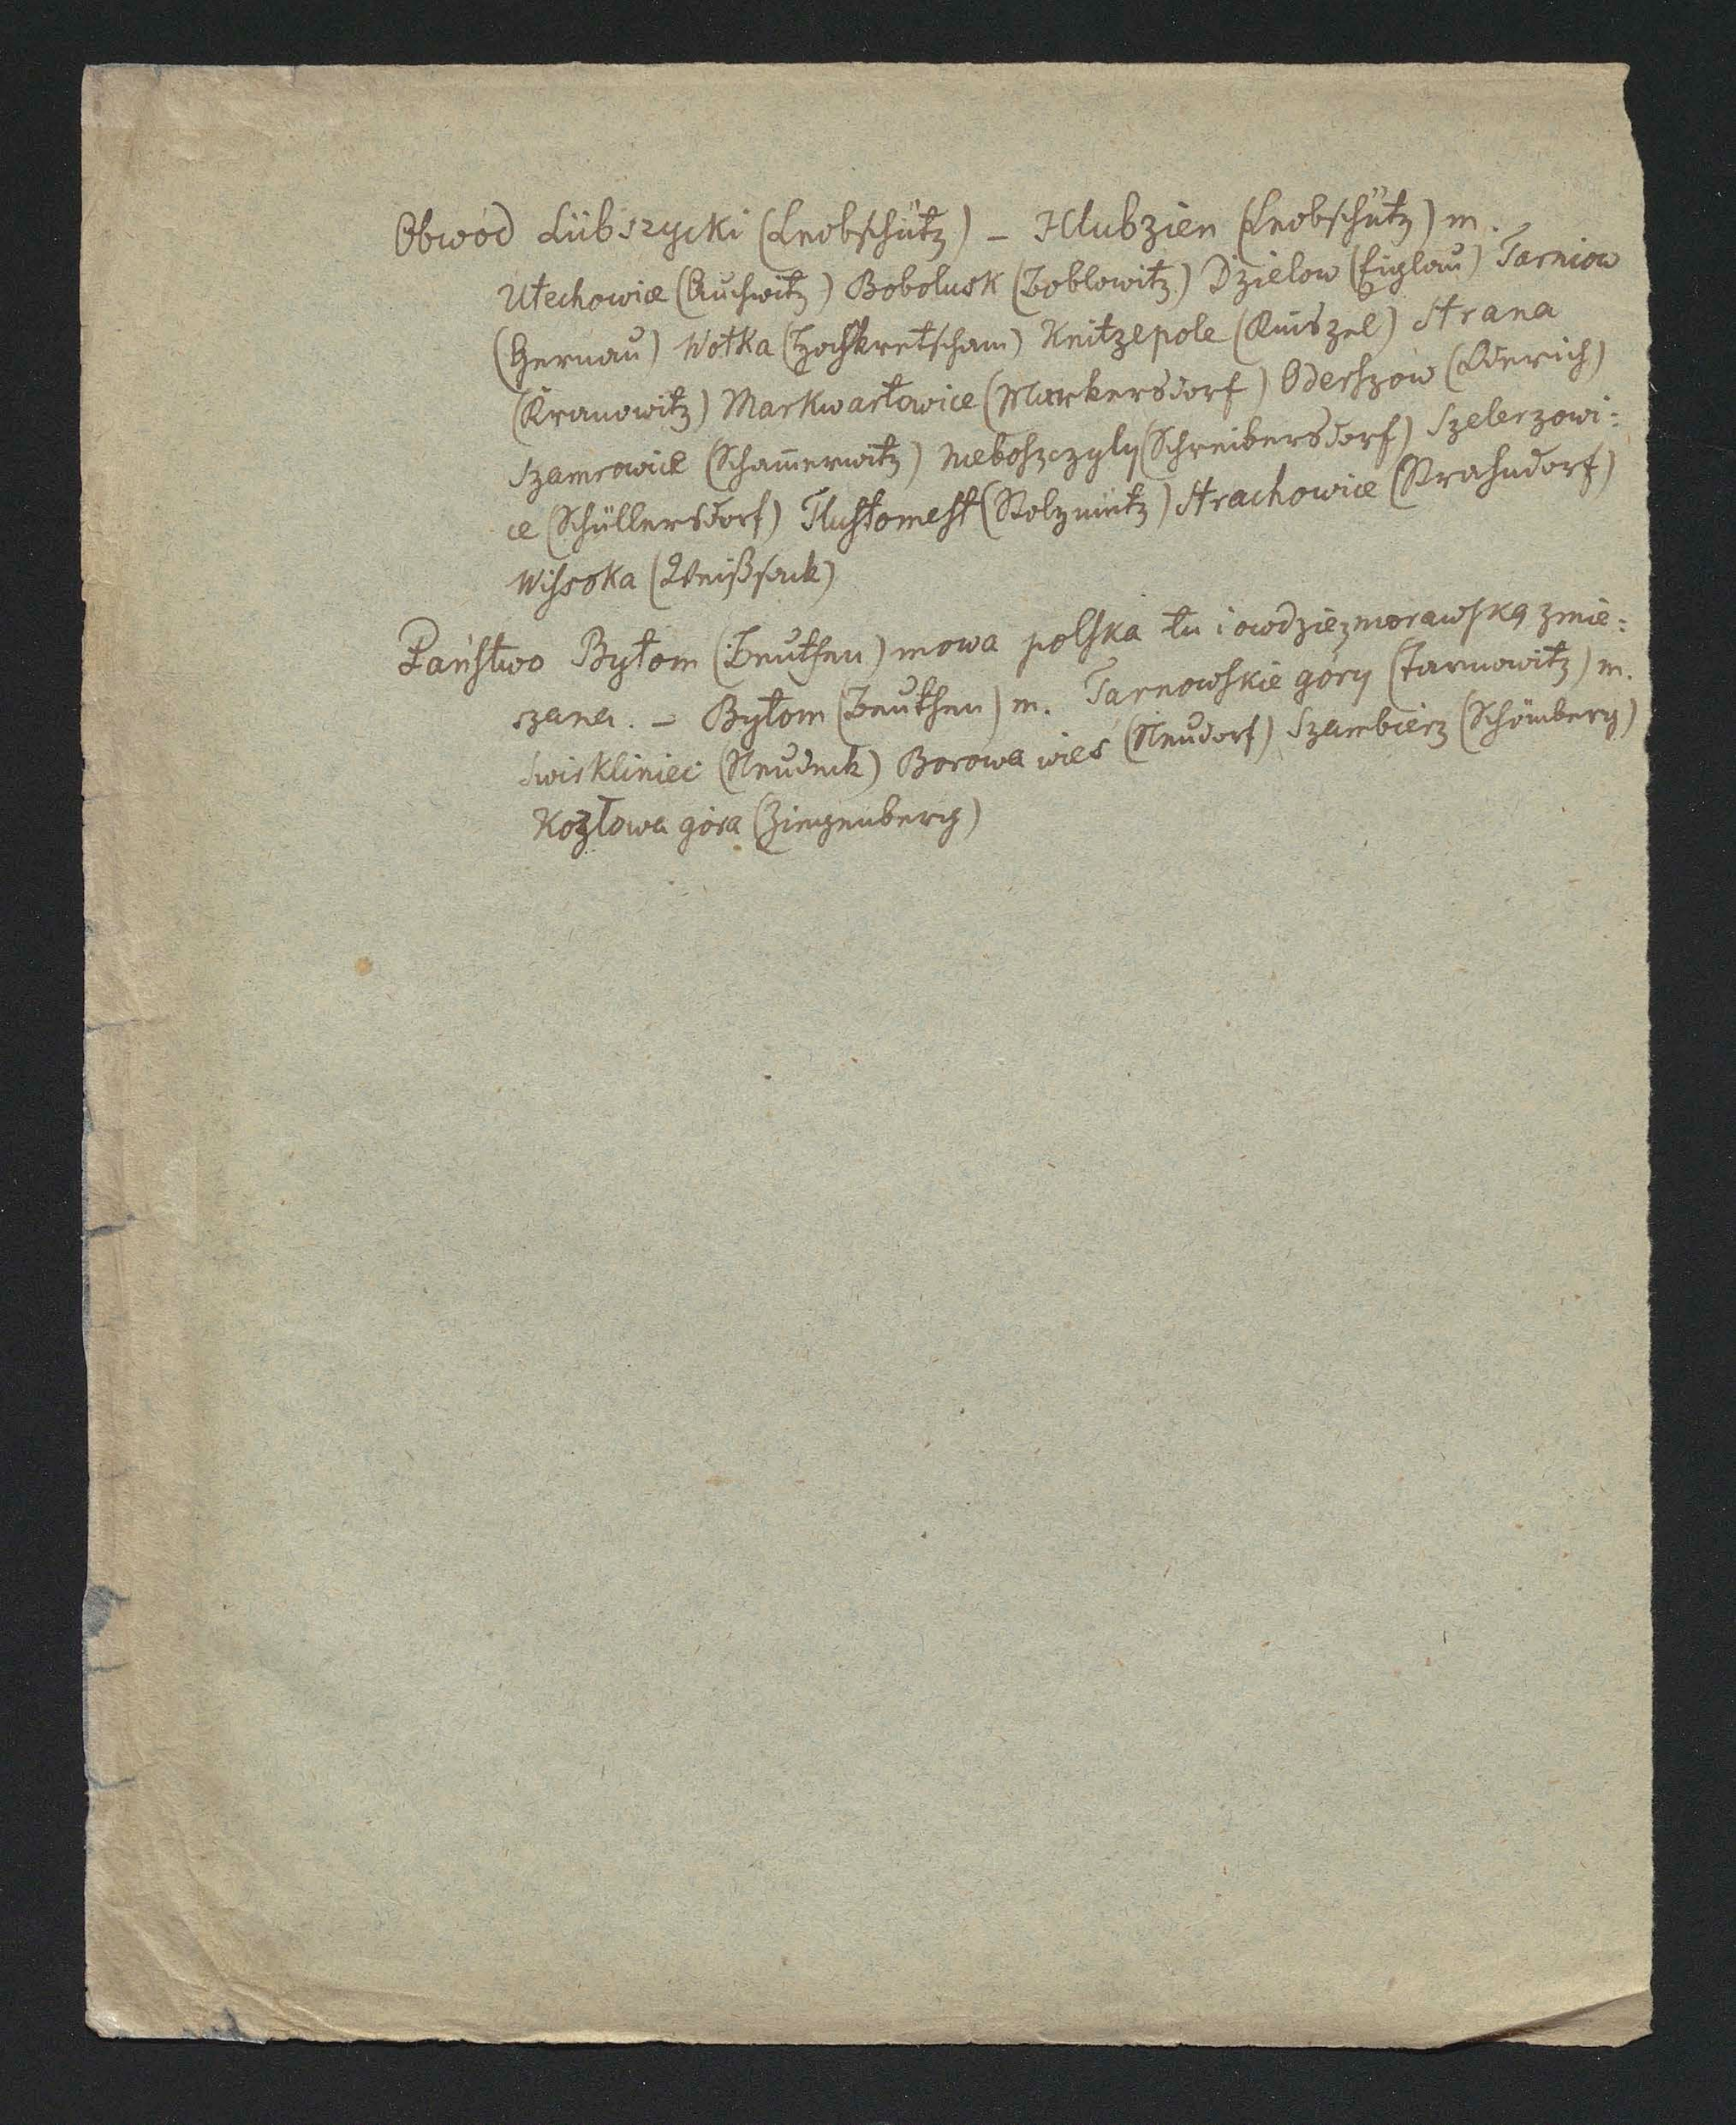 Obwód Lübszycki (Leobschütz) – Hlubzien (Leobschütz) m.
Utechowice (Auchwitz) Bobolusk (Boblowitz) Dzielow (Eiglau) Tarniow
(Gernau) Wotka (Hochkretscham) Knitzepole (Kniszpel) Strana
(Kranowitz) Markwartowice (Markersdorf) Oderszow (Odersch)
Szamrowice (Schammerwitz) Neboszczyly (Schreibersdorf) Szelerzowi=
ce (Schüllersdorf) Tlustomest (Stolzmütz) Strachowice (Strahndorf)
Wisoka (Weißsack)
Państwo Bytom (Beuthen) mowa polska tu i owdzie z morawską zmie=
szana. – Bytom (Beuthen) m. Tarnowskie góry (Tarnowitz) m.
Swirkliniec (Neudeck) Borowa wieś (Neudorf) Szambierz (Schömberg)
Kozłowa góra (Ziegenberg)